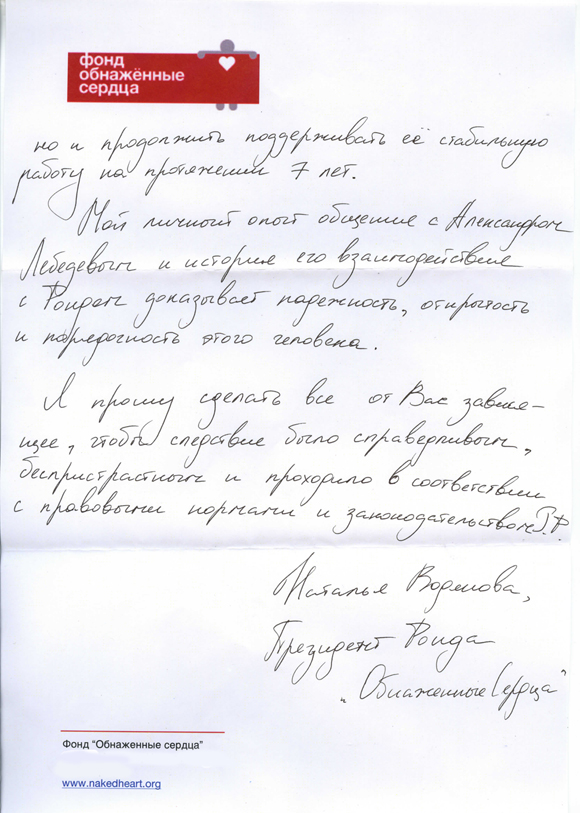 фонд
обнажённые
сердца
но и продолжить поддерживать её стабильную
работу на протяжении 7 лет.
Мой личный опыт общения с Александром
Лебедевым и история его взаимодействия
с Фондом доказывает надежность, открытость
и порядочность этого человека.
Я прошу сделать все от Вас завися-
щее, чтобы следствие было справедливым,
беспристрастным и проходило в соответствии
с правовыми нормами и законодательством Р.Ф.
Наталья Водянова,
Президент Фонда
„Обнаженные Сердца"
Фонд "Обнаженные сердца"
www.nakedheart.org